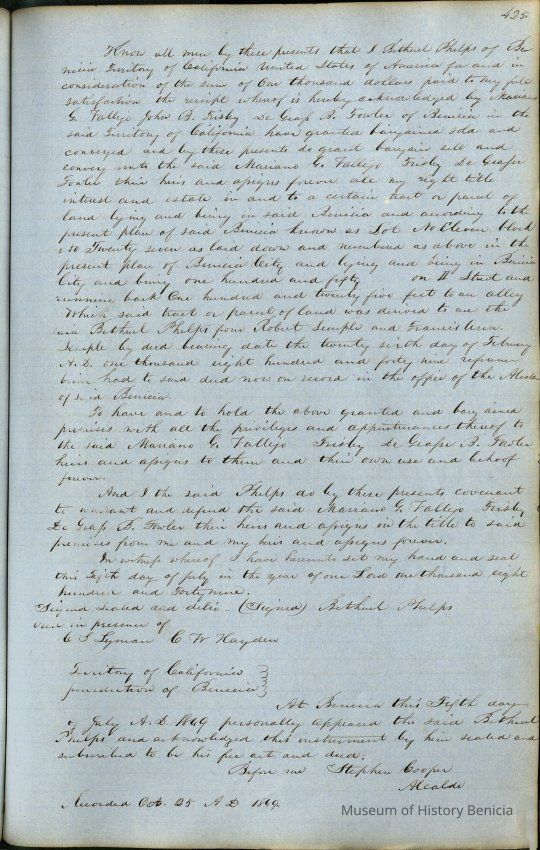 425
Know all men by these presents that I Bethuel Phelps of Be
nicia Territory of California United States of America for and in
consideration of the sum of One thousand dollars paid to my full
satisfaction the receipt whereof is hereby acknowledged by Mariano
G. Vallejo John B. Frisby De Graf B. Fowler of Benicia in the
said Territory of California have granted bargained sold and
conveyed and by these presents do grant bargain sell and
convey unto the said Mariano G. Vallejo Frisby De Grasse
Fowler their heirs and assigns forever all my right title
interest and estate in and to a certain tract or parcel of
land lying and being in said Benicia and according to the
present plan of said Benicia known as Lot No Eleven block
No Twenty seven as laid down and numbered as above in the
present plan of Benicia City and lying and being in Benicia
City and being one hundred and fifty on H Street and
running back One hundred and twenty five feet to an alley
Which said tract or parcel of land was to me the
said Bethuel Phelps from Robert Semple and Francis
Semple by deed bearing date the twenty sixth day of February
A.D. one thousand eight hundred and forty nine referen
being had to said deed now on record in the office of the Alcalde
of said Benicia
To have and to hold the above granted and bargained
premises with all the priviliges and appurtenances thereof to
the said Mariano G. Vallejo Frisby De Grasse B. Fowler
heirs and assigns to them and their own use and behoof
forever.
And I the said Phelps do by these presents covenant
to warrant and defend the said Mariano G. Vallejo Frisby
De Grass B. Fowler their heirs and assigns in the title to said
premises from me and my heirs and assigns forever.
In witness whereof I have hereunto set my hand and seal
this Fifth day of July in the year of our Lord one thousand eight
hundred and Forty nine.
Signed sealed and deliv- (Signed) Bethuel Phelps
in presence of
C S Lyman C W Hayden
Territory of California
jurisdiction of Benicia
At Benicia this Fifth day
of July A.D. 1849 personally appeared the said Bethuel
Phelps and acknowledged this instrument by him sealed and
subscribed to be his free act and deed.
Before me Stephen Cooper
Alcalde
Recorded Oct. 25 A D 1849
Museum of History Benicia